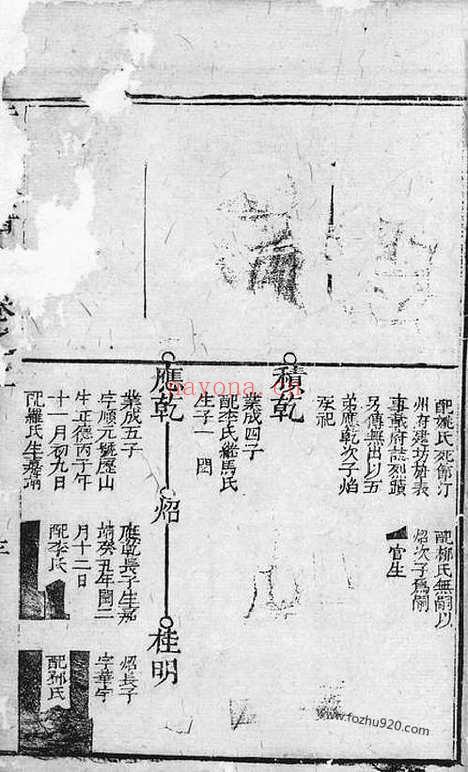 配姚氏死節汀
州府建坊旌表
事載府誌刻蹟
另傳無出以五
弟應乾次子焰
承祀
配柳氏無嗣以
炤次子為嗣
官生
積乾
業成四子
配李氏繼馬氏
生子一
應乾
業成五子
字順元號應山
生正德丙子年
十一月初九日
配羅氏生嘉靖
炤
應乾長子生嘉
靖癸丑年閏二
月十二日
配李氏
桂明
炤長子
字華宇
配鄒氏
卷之
nayona.cn
www.fozhu920.com